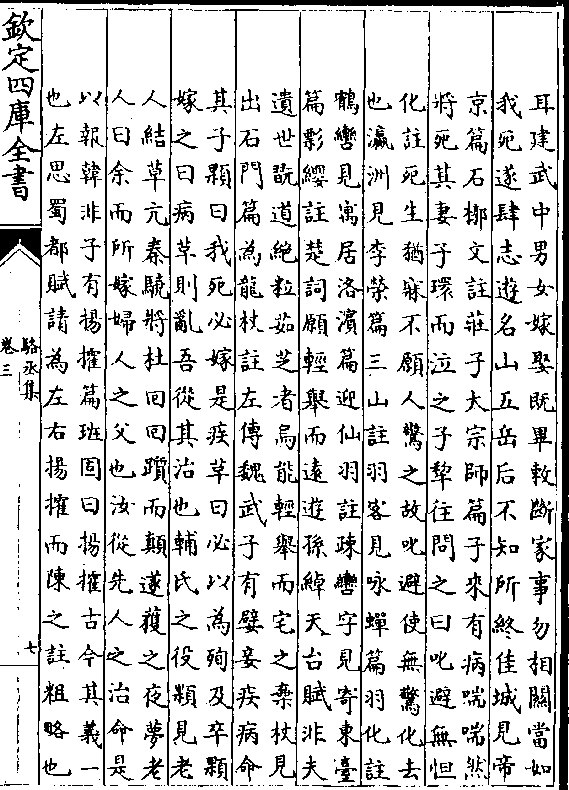 耳建武中男女嫁娶既畢敕斷家事勿相關當如
我死遂肆志遊名山五岳后不知所終佳城見帝
京篇石槨文註莊子大宗師篇子來有病喘喘然
將死其妻子環而泣之子犂往問之曰叱避無怛
化註死生猶寐不願人驚之故叱避使無驚化去
也瀛洲見李榮篇三山註羽客見咏蟬篇羽化註
鶴轡見寓居洛濱篇迎仙羽註疎轡字見寄東臺
篇影纓註楚詞願輕舉而遠遊孫綽天台賦非夫
遺世翫道絶粒茹芝者烏能輕舉而宅之棄杖見
出石門篇為龍杖註左傳魏武子有嬖妾疾病命
其子顆曰我死必嫁是疾革曰必以為殉及卒顆
嫁之曰病革則亂吾從其治也輔氏之役顆見老
人結草亢秦驍將杜回回躓而顛遂獲之夜夢老
人曰余而所嫁婦人之父也汝從先人之治命是
以報韓非子有揚搉篇班固曰揚搉古今其義一
也左思蜀都賦請為左右揚搉而陳之註粗略也
欽定四庫全書
駱丞集
卷三
七